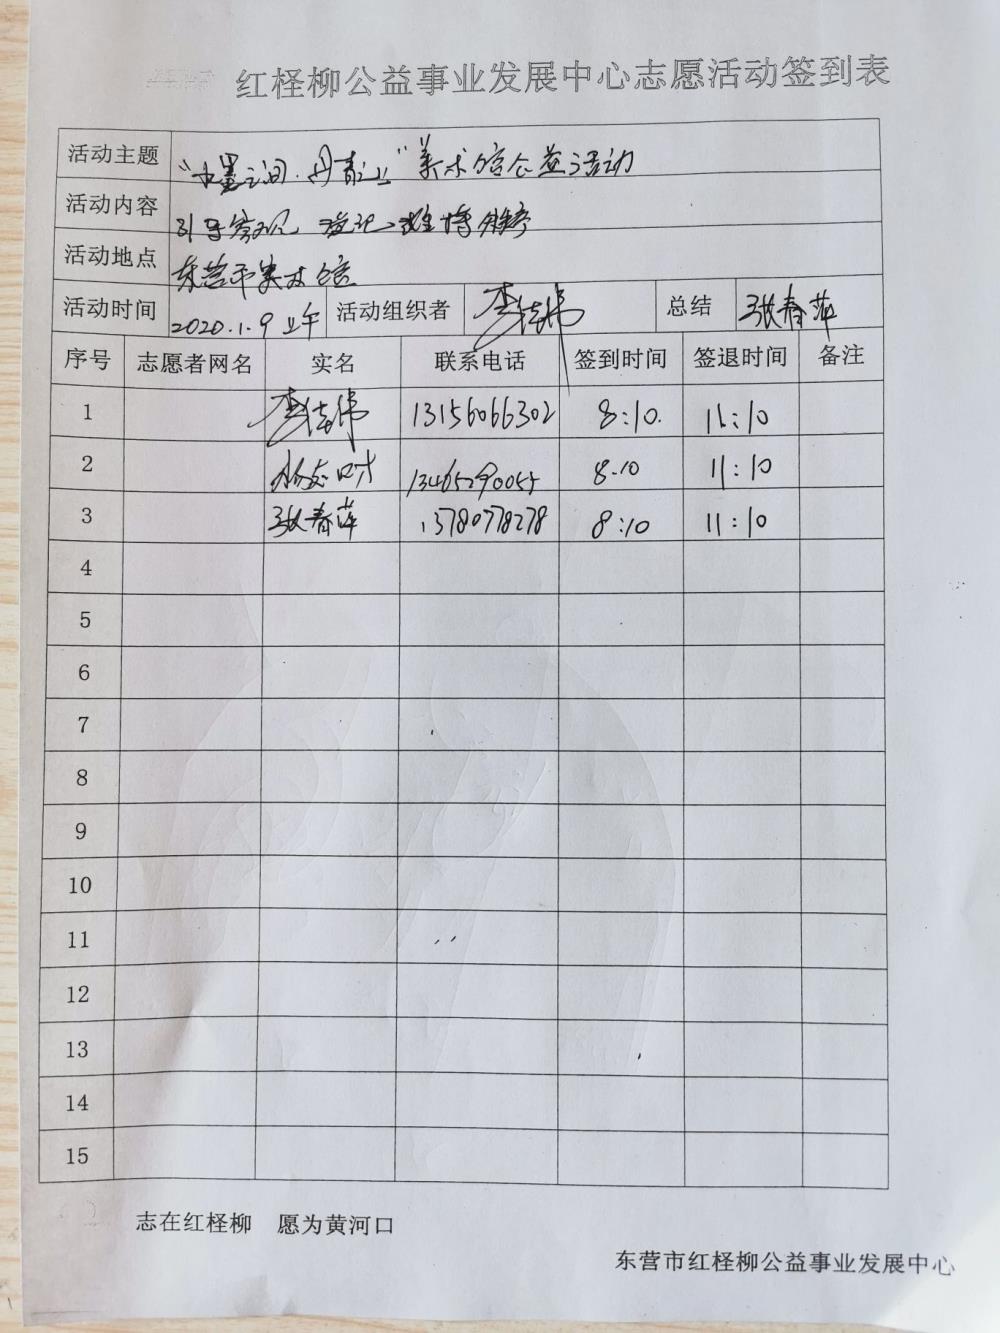 红柽柳公益事业发展中心志愿活动签到表
活动主题 "水墨之间·丹青之上"美术馆公益活动
活动内容 引导参观、登记、维持秩序
活动地点 东营市美术馆
活动时间 2020.1.9 上午 活动组织者 李 伟 总结 张春萍
序号 志愿者网名 实名 联系电话 签到时间 签退时间 备注
1 李 伟 13156066302 8:10. 11:10
2 13465290055 8.10 11:10
3 张春萍 13780778278 8:10 11:10
4
5
6
7
8
9
10
11
12
13
14
15
志在红柽柳 愿为黄河口
东营市红柽柳公益事业发展中心